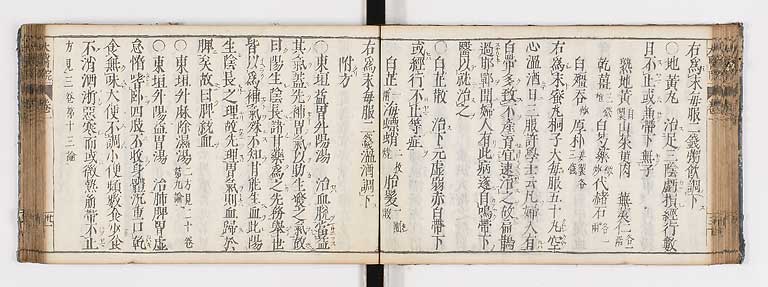 右為末每服一錢粥飲調下
○地黃丸 治足三陰虧損經行數
日不止或兼帶下無子
熟地黃 山茱萸肉 蕪荑仁各一兩
乾薑 白芍藥 代赭石各一兩
白殭蠶 厚朴各三錢
右為末蜜丸梧子大每服五十丸空
心溫酒日三服許學士云凡婦人有
白帶多致不產育宜速治之
過邯鄲聞婦人有此病遂自鳴帶下
醫以就治之
○白芷散 治下元虛弱赤白帶下
或經行不止等症
白芷一兩 海螵蛸二枚燒 胎髮一團
右為末每服二錢溫酒調下
附方
○東垣益胃升陽湯 治血脫益
其氣蓋先補胃氣以助生發之氣故
曰陽生陰長諸甘藥為之先務舉世
皆以為補氣殊不知甘能生血此陽
生陰長之理故先理胃氣則血歸於
脾矣故曰脾統血
○東垣升麻除濕湯 方見二十卷
○東垣升陽益胃湯 治肺脾胃虛
怠惰嗜臥四肢不收身體沉重口乾
食無味大便不調小便頻數食少食
不消洒淅惡寒而或微熱崩帶不止
方見三卷第十三論